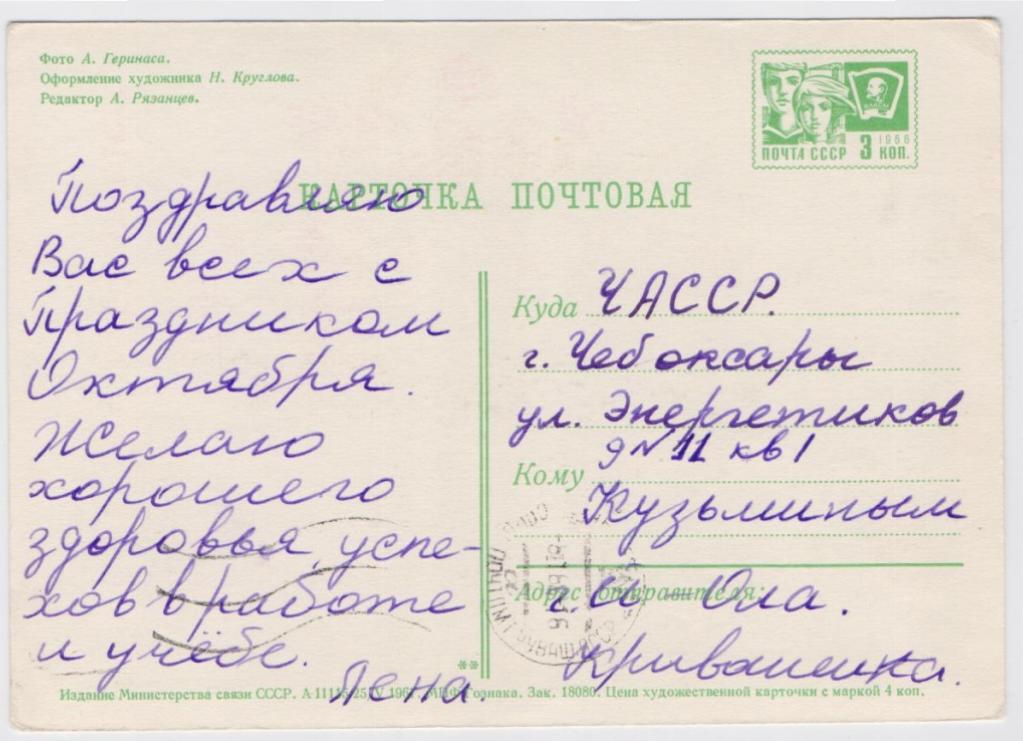 Фото А. Геринаса.
Оформление художника Н. Круглова.
Редактор А. Рязанцев.
1966
ПОЧТА СССР 3 КОП.
КАРТОЧКА ПОЧТОВАЯ
Поздравляю
Вас всех с
Праздником
Октября.
Желаю
хорошего
здоровья, успе-
хов в работе
и учёбе.
Лена.
Куда ЧАССР.
г. Чебоксары
ул. Энергетиков
д № 11 кв 1
Кому
Кузьминым
Адрес отправителя:
г. Й-Ола.
Кривашеика.
**
Издание Министерства связи СССР. МПФ Гознака. Зак. 18080. Цена художественной карточки с маркой 4 коп.